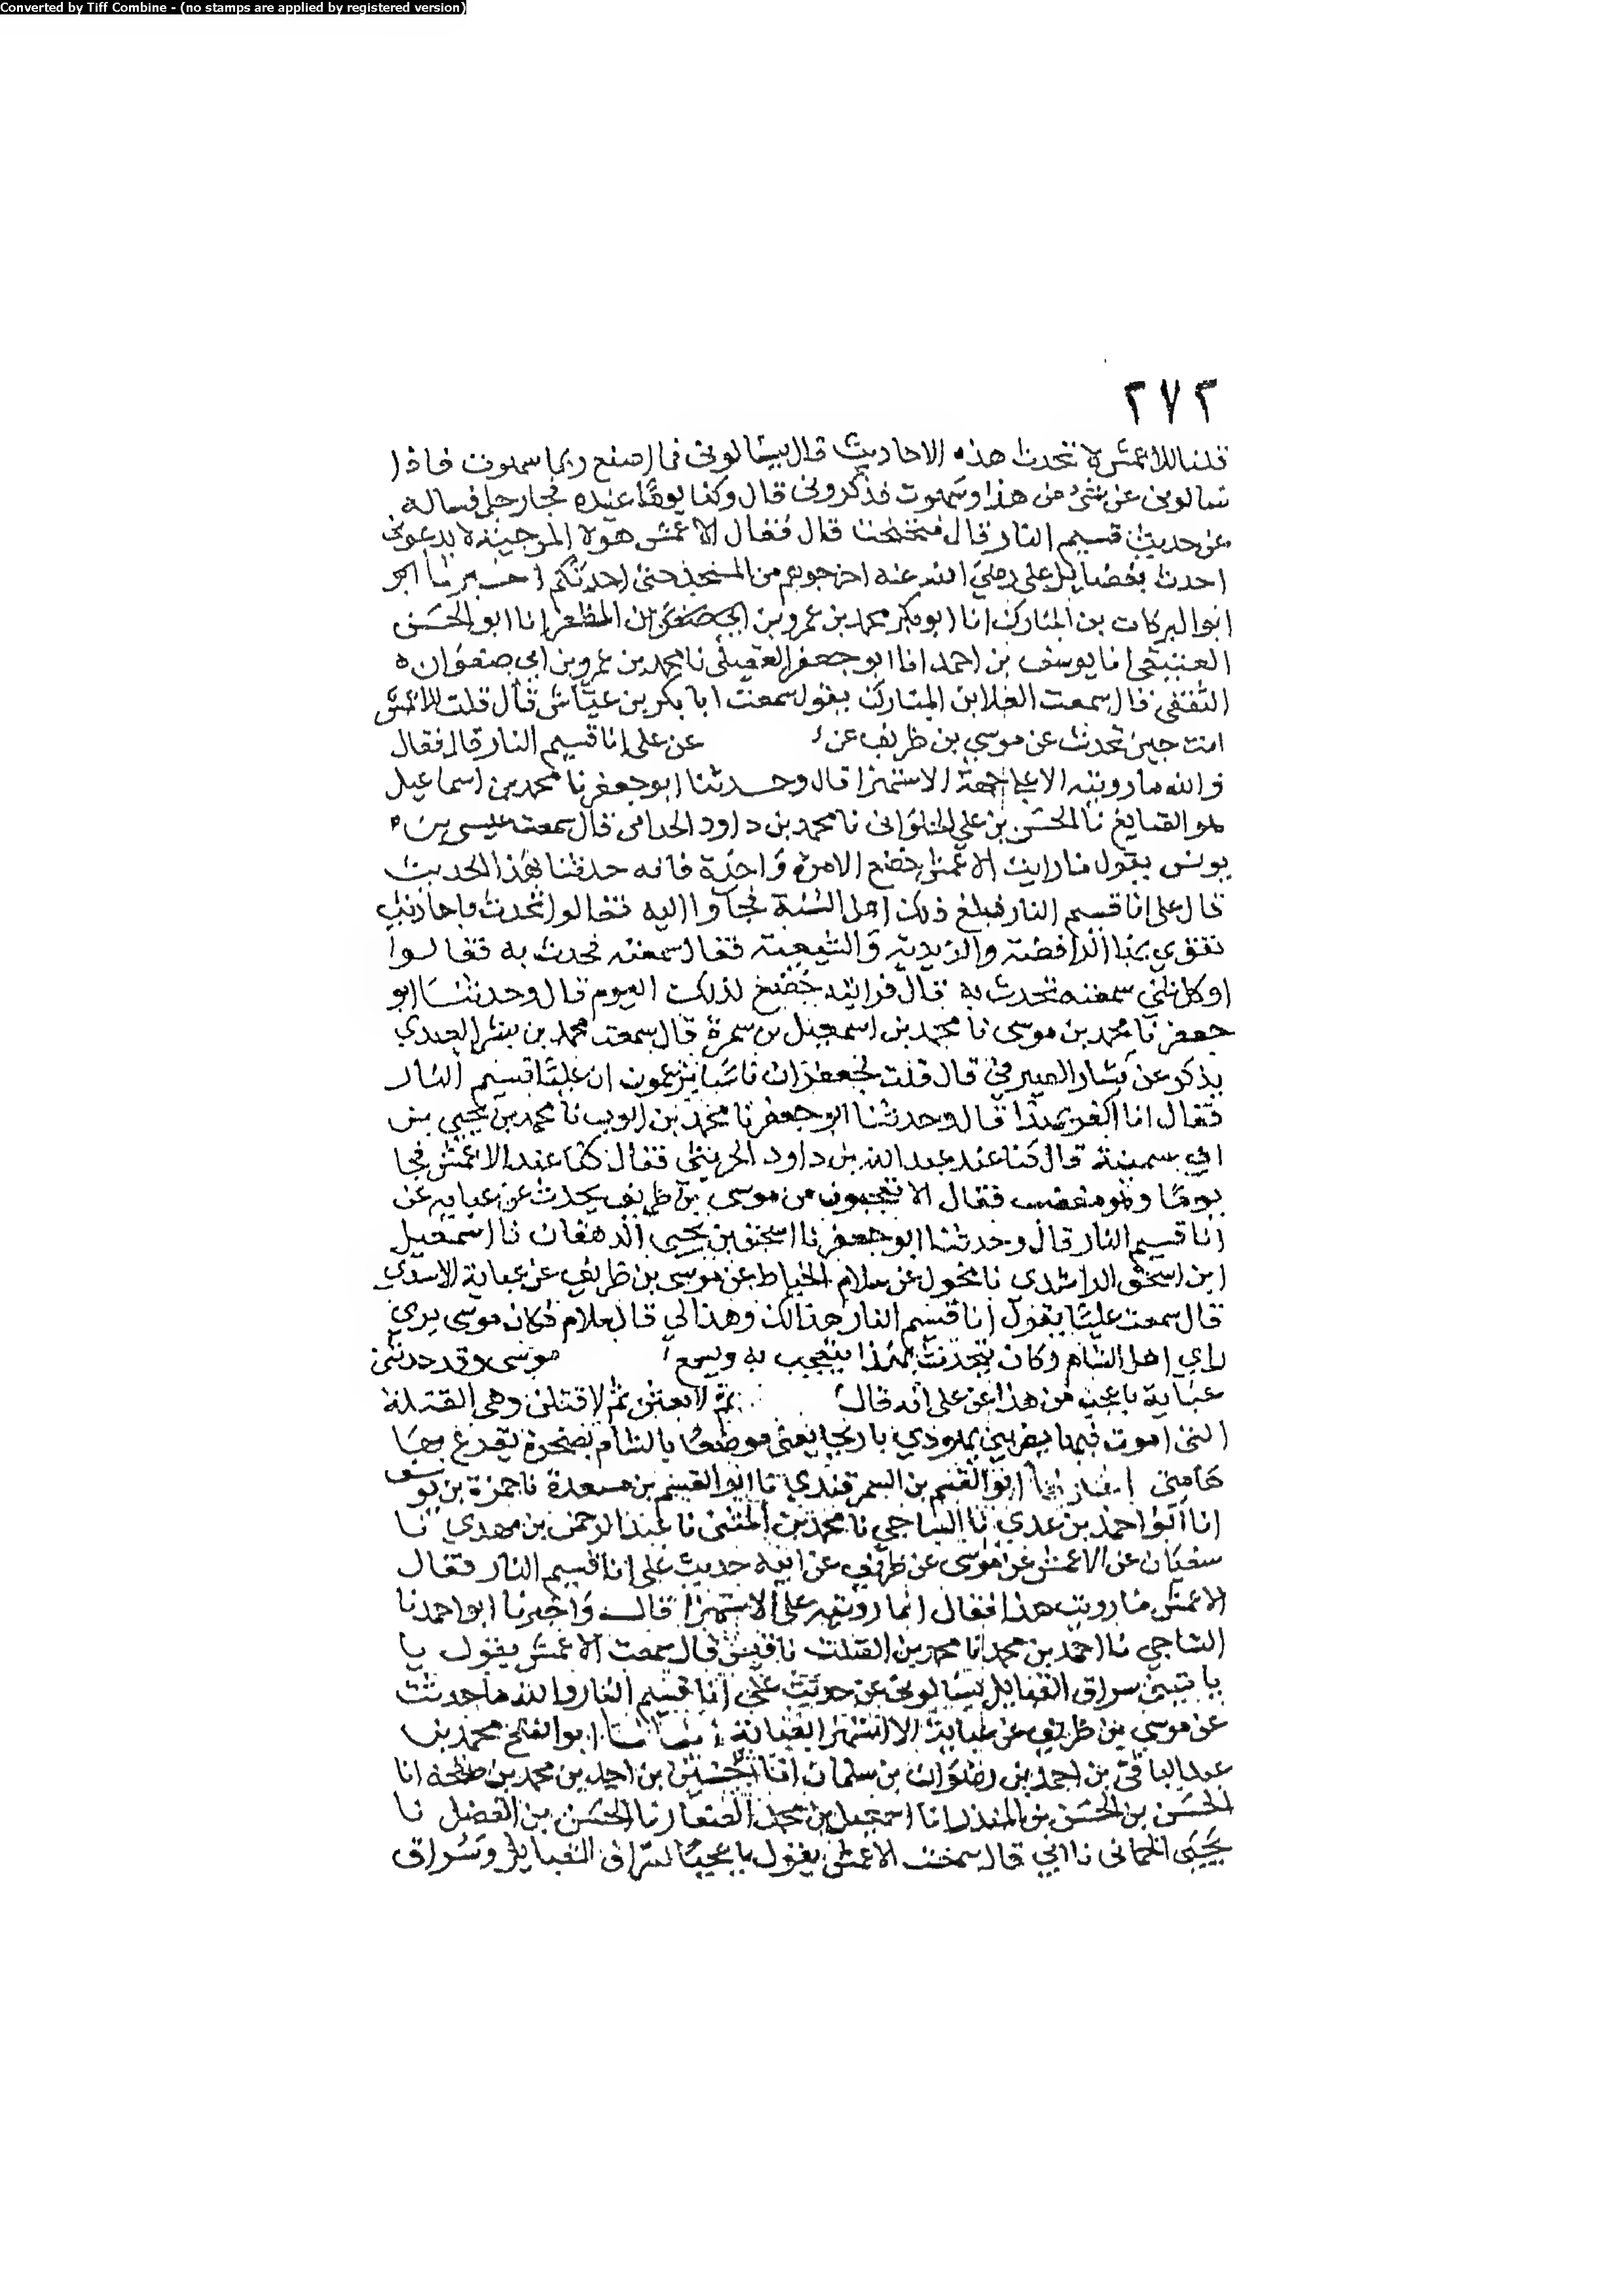 Converted by Tiff Combine - (no stamps are applied by registered version)
٢٧٢
قلنا للاعمش لا تحدث هذه الاحاديث قال يسالونى فما اصنع ربما سهوت فاذا
سالونى عن شئ من هذا وسهوت فذكرونى قال وكنا يوما عنده فجا رجل فساله
عن حديث قسيم النار قال فتنحنحت قال فقال الاعمش هولا المرجيئة لا يدعونى
احدث بفضايل على رضى الله عنه اخرجوهم من المسجد حتى احدثكم اخبرنا
ابو البركات بن المبارك انا ابو بكر محمد بن المظفر انا ابو الحسن
العتيقى انا يوسف بن احمد انا ابو جعفر العقيلى نا محمد بن عمرو بن ابى صفوان
الثقفى قال سمعت العلا بن المبارك يقول سمعت ابا بكر بن عياش قال قلت للاعمش
انت حين تحدث عن موسى بن طريف عن عن على انا قسيم النار قال فقال
والله ما رويته الا على جهة الاستهزا قال وحدثنا ابو جعفر نا محمد بن اسماعيل
هو الصايغ نا الحسن بن على الحلوانى نا محمد بن داود الحدانى قال سمعت عيسى بن
يونس يقول ما رايت الاعمش خضع الا مرة واحدة فانه حدثنا بهذا الحديث
قال على انا قسيم النار فبلغ ذلك اهل السنة فجاوا اليه فقالوا تحدث باحاديث
تقوى بها الرافضة والزيدية والشيعة فقال سمعته فحدثت به فقالوا
او كل شئ سمعته تحدث به قال فرايته خضع لذلك اليوم قال وحدثنا ابو
جعفر نا محمد بن موسى نا محمد بن اسمعيل بن سمرة قال سمعت محمد بن بشر العبدى
يذكر عن بسام الصيرفى قال قلت لجعفر ان ناسا يزعمون ان عليا قسيم النار
فقال انا اكفر بهذا قال وحدثنا ابو جعفر نا محمد بن ايوب نا محمد بن يحيى بن
ابى سمينة قال كنا عند عبد الله بن داود الخريبى فقال كنا عند الاعمش فجا
يوما وهو مغضب فقال الا تعجبون من موسى بن طريف يحدث عن عبايه عن
انا قسيم النار قال وحدثنا ابو جعفر نا اسحق بن يحيى الدهقان نا اسمعيل
ابن اسحق الراشدى نا مخول عن سلام الخياط عن موسى بن طريف عن عباية الاسدى
قال سمعت عليا يقول انا قسيم النار هذا لك وهذا لى قال سلام فكان موسى يرى
راى اهل الشام وكان يتحدث بهذا يتعجب به ويسمع موسى وقد حدثنى
عباية باعجب من هذا عن على انه قال ثم لابعثن ثم لاقتلن وهى القتلة
التى اموت فيها يضربنى يهودى باريحا يعنى موضعا بالشام بصخرة يقدغ بها
هامتى اخبرنا ابو القسم بن السمرقندى نا ابو القسم بن مسعدة نا حمزة بن يوسف
انا ابو احمد بن عدى نا الساجى نا محمد بن المثنى نا عبد الرحمن بن مهدى نا
سفيان عن الاعمش عن موسى عن طريف عن ابيه حديث على انا قسيم النار فقال
الاعمش ما رويت هذا فقال انما رويته على الاستهزا قال واخبرنا ابو احمد نا
الساجى نا احمد بن محمد نا محمد بن الصلت نا قيس قال سمعت الاعمش يقول يا
يا تبنى سراق القبايل يسالونى عن حديث على انا قسيم النار والله ما حدثت
عن موسى بن طريف عن عباية الا استهزا بعباية انبانا ابو الفتح محمد بن
عبد الباقى بن احمد بن سلمان انا الحسين بن احمد بن محمد بن طلحة انا
الحسن بن الحسن بن المنذر انا اسمعيل بن محمد الصفار نا الحسن بن الفضل نا
يحيى الحمانى نا ابى قال سمعت الاعمش يقول يا عجبا لسراق القبايل وسراق